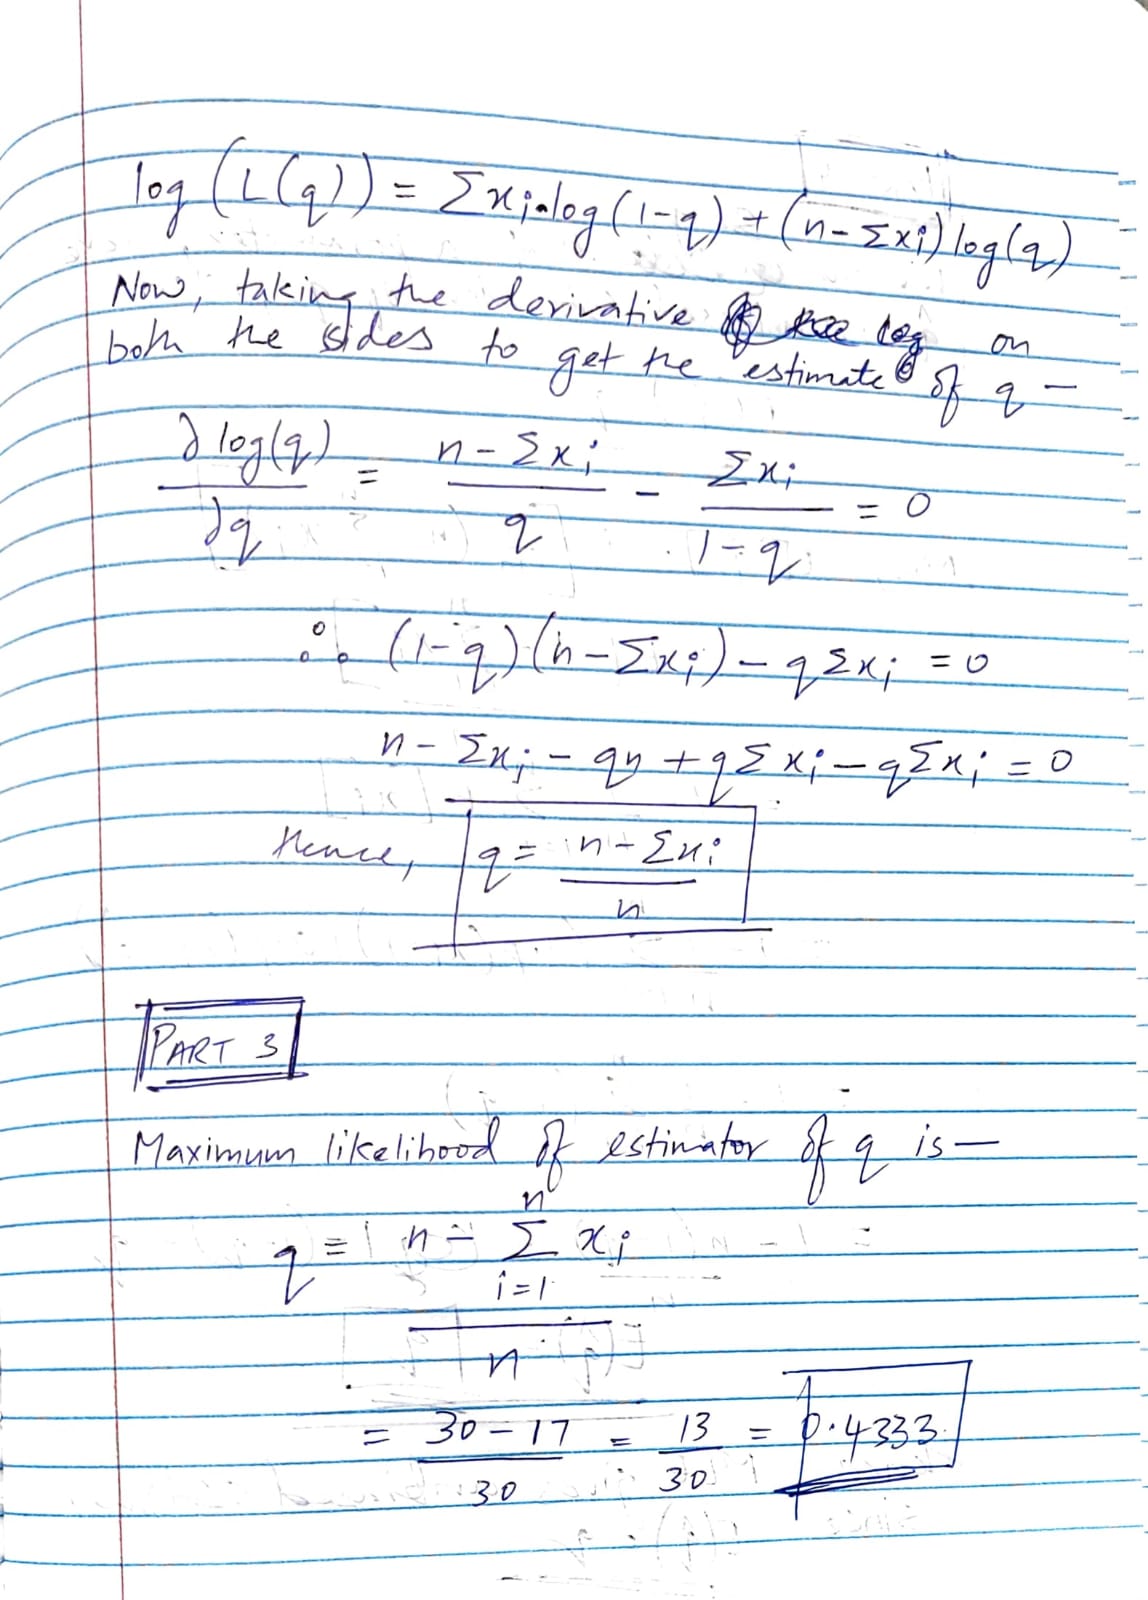 log (L(q)) = Σxi.log(1-q) + (n-Σxi) log(q)
Now, taking the derivative log on
both the sides to get the estimate of q —
∂ log(q) / ∂q = n - Σxi / q - Σxi / 1-q = 0
∴ (1-q)(n-Σxi) - qΣxi = 0
n - Σxi - qn + qΣxi - qΣxi = 0
Hence, q = n - Σxi / n
PART 3
Maximum likelihood of estimator of q is —
q = n - Σ_{i=1}^{n} xi / n
= 30-17 / 30 = 13 / 30 = 0.4333